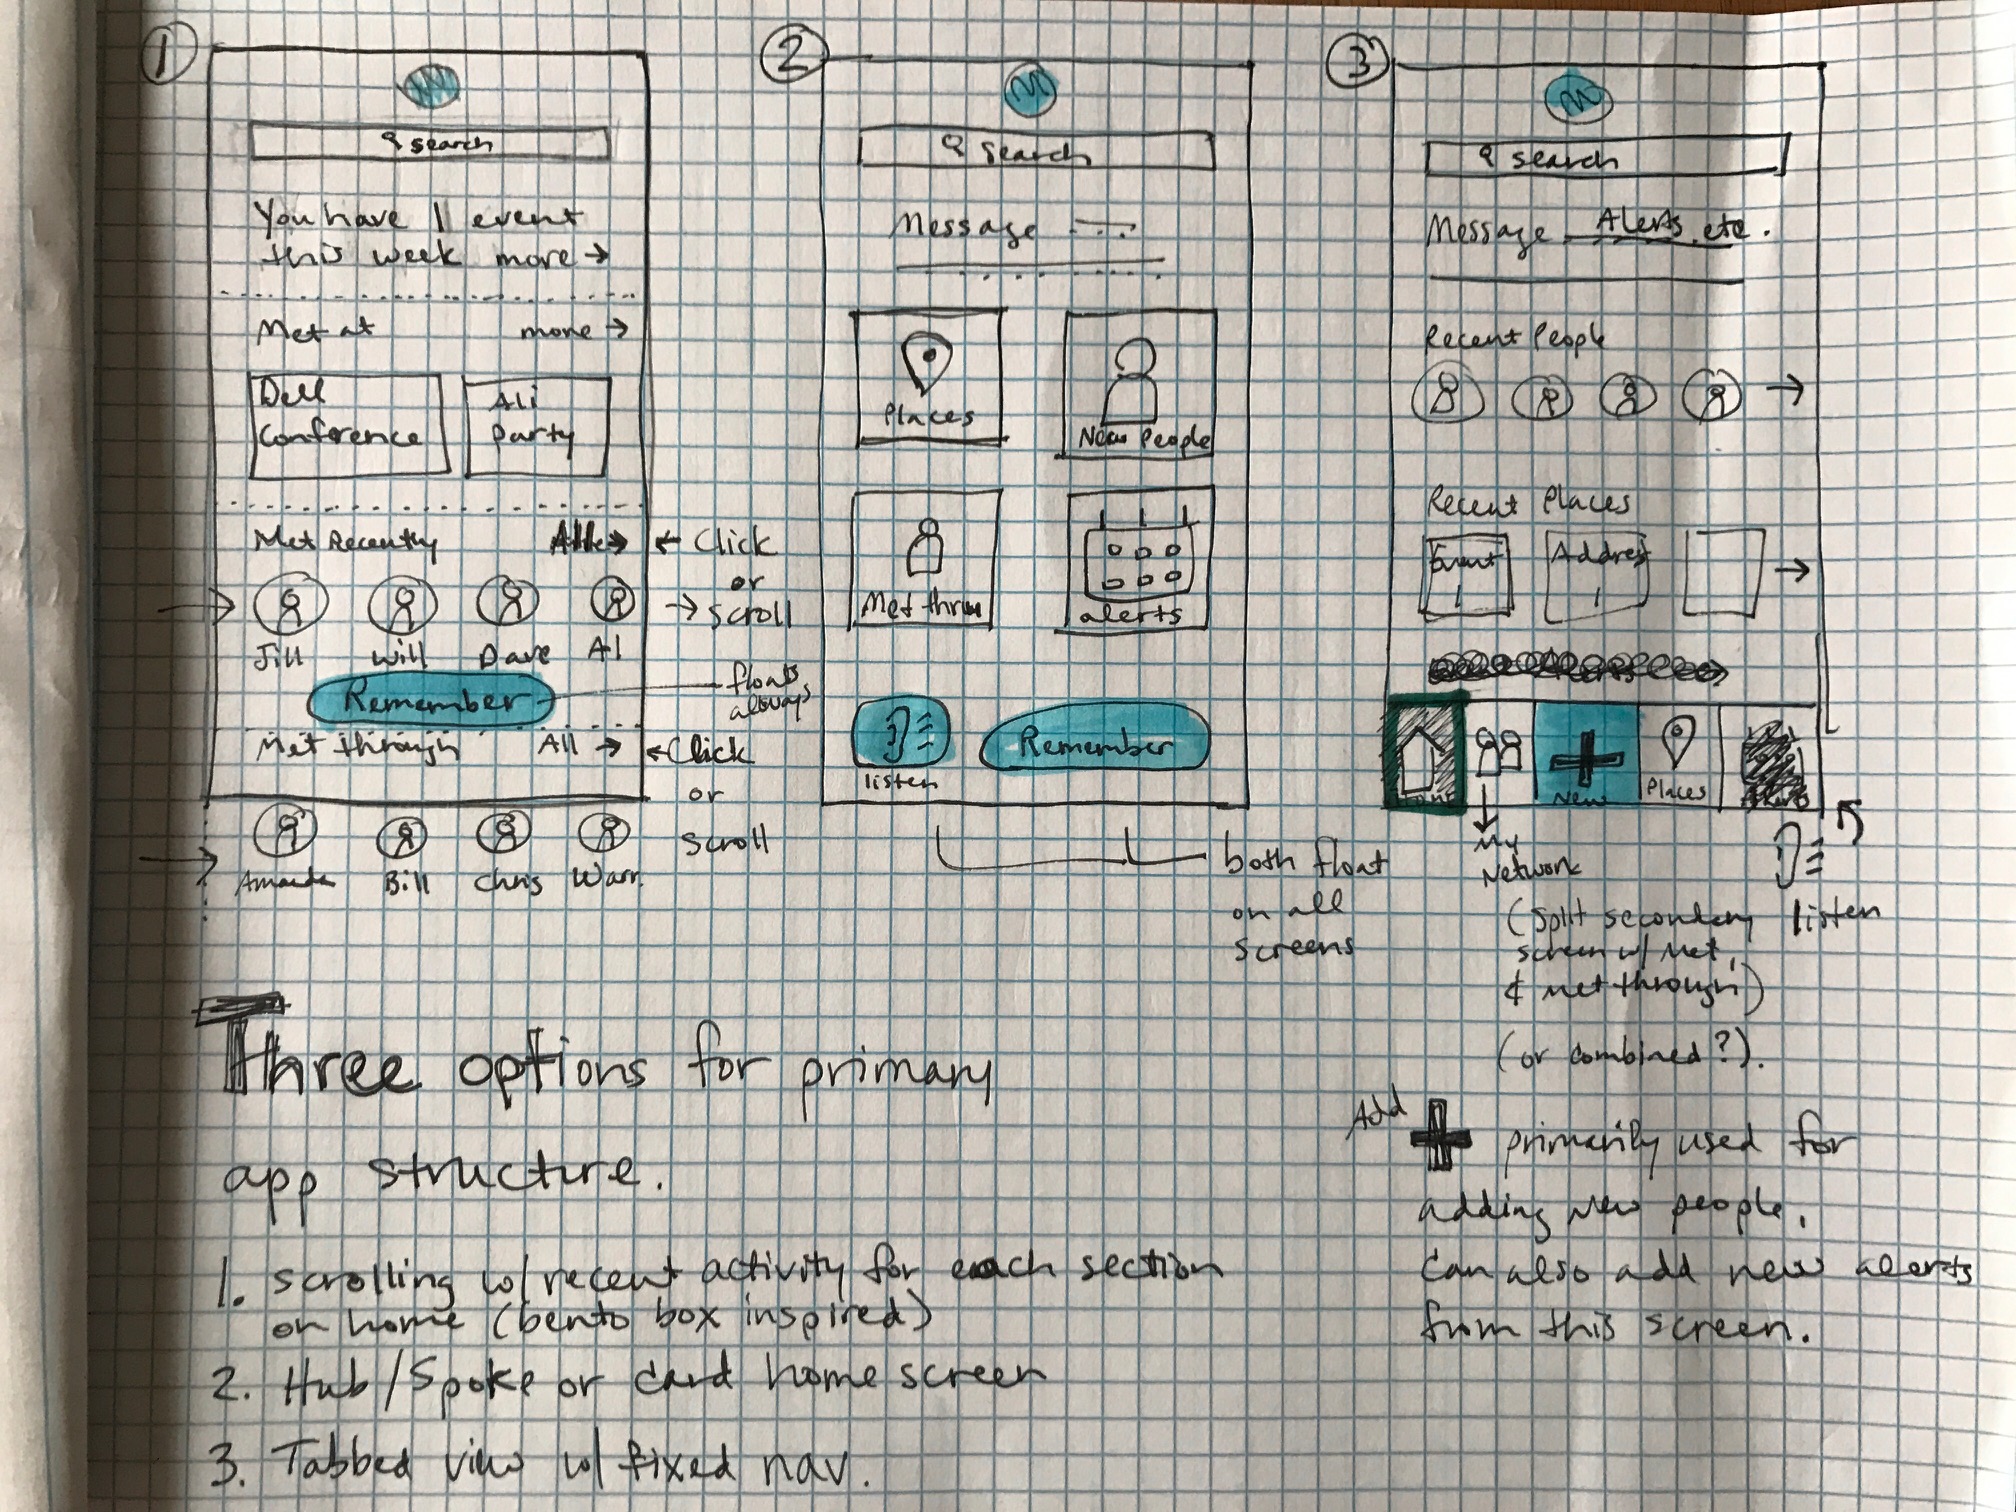 1
search
You have 1 event
this week more →
Met at more →
Dell
Conference
Ali
Party
Met Recently All →
← Click
or
→ scroll
Jill Will Dave Al
Remember
floats
always
Met through All →
← Click
or
scroll
Amanda Bill Chris Warr.
2
search
Message
Places
New People
Met thru
alerts
listen
Remember
both float
on all
screens
3
search
Message Alerts, etc.
Recent People
→
Recent Places
Event
1
Address
1
→
New
Places
My
Network
(split secondary
screen w/ met,
& met through)
(or combined?).
listen
Add + primarily used for
adding new people.
Can also add new alerts
from this screen.
Three options for primary
app structure.
1. scrolling w/ recent activity for each section
on home (bento box inspired)
2. Hub/Spoke or card home screen
3. Tabbed view w/ fixed nav.